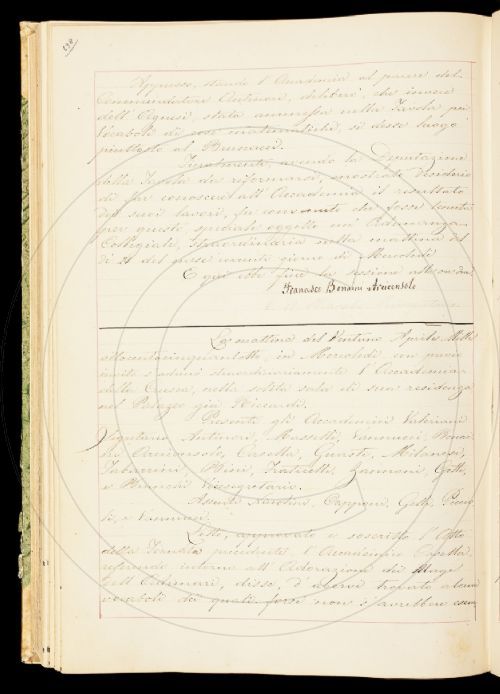 Appresso, stando l'Accademia al parere del
Commendatore Antinori, deliberò, che invece
dell'Agnesi, stata ammessa nella Tavola pei
Vocaboli di cose matematiche, si desse luogo
piuttosto al Brunacci.
Finalmente, avendo la Deputazione
della Tavola da riformarsi, mostrato desiderio
di far conoscere all'Accademia il resultato
dei suoi lavori, fu convenuto che fosse tenuta
per questo speciale oggetto un'Adunanza
Collegiale, straordinaria nella mattina del
dì 21 del mese corrente giorno di Mercoledì
E qui ebbe fine la sessione
Francesco Bonaini Arciconsolo
La mattina del Ventuno Aprile Mille
ottocentocinquantotto, in Mercoledì, con previo
invito s'adunò straordinariamente l'Accademia
della Crusca, nella solita sala di sua residenza
nel Palazzo già Riccardi.
Presenti gli Accademici Valeriani
Antinori, Masselli, Vannucci, Bonai-
ni Arciconsolo, Casella, Guasti, Milanesi,
Tabarrini, Bini, Fraticelli, Zannoni,
e Vicesegretario.
Assenti
e
Letto, approvato e soscritto l'Atto
della Tornata precedente l'Accademico Casella
referendo intorno all'Adorazione dei Magi
dell'Adimari, disse, d'avervi trovato alcuni
vocaboli dei quali forse non s'avrebbero